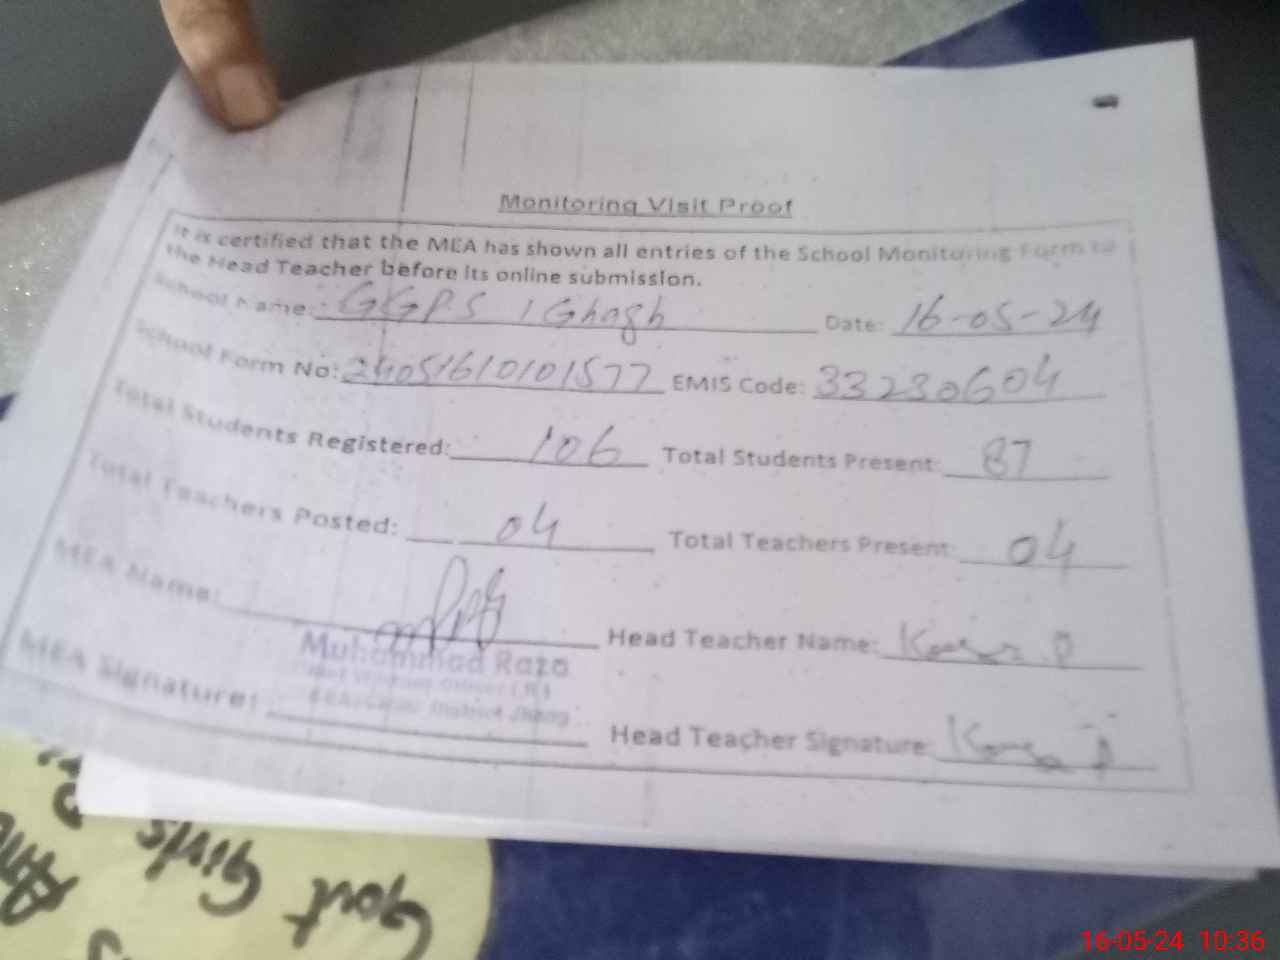 Monitoring Visit Proof
It is certified that the MEA has shown all entries of the School Monitoring Form to
the Head Teacher before its online submission.
School Name: GGPS 1 Ghagh Date: 16-05-24
School Form No: 24051610101577 EMIS Code: 33230604
Total Students Registered: 106 Total Students Present: 87
Total Teachers Posted: 04 Total Teachers Present: 04
MEA Name: Head Teacher Name: Kousar P
Muhammad Raza
District Jhang
MEA Signature: Head Teacher Signature:
Govt Girls
16-05-24 10:36